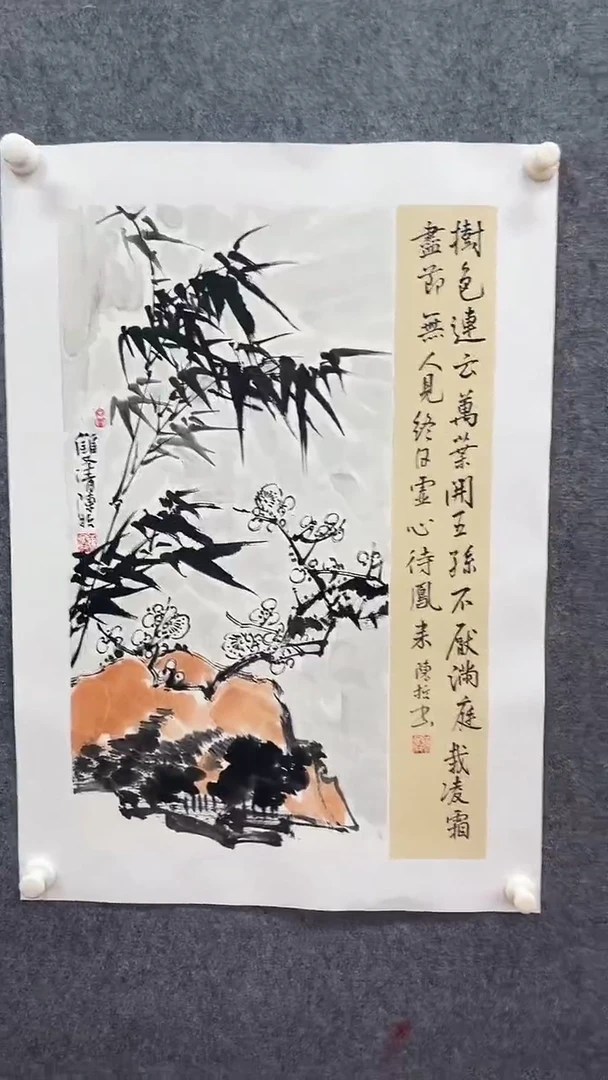 樹色連云萬葉開王孫不厭滿庭栽凌霜
盡節無人見終日虛心待鳳来 陳 书
雙清 陳